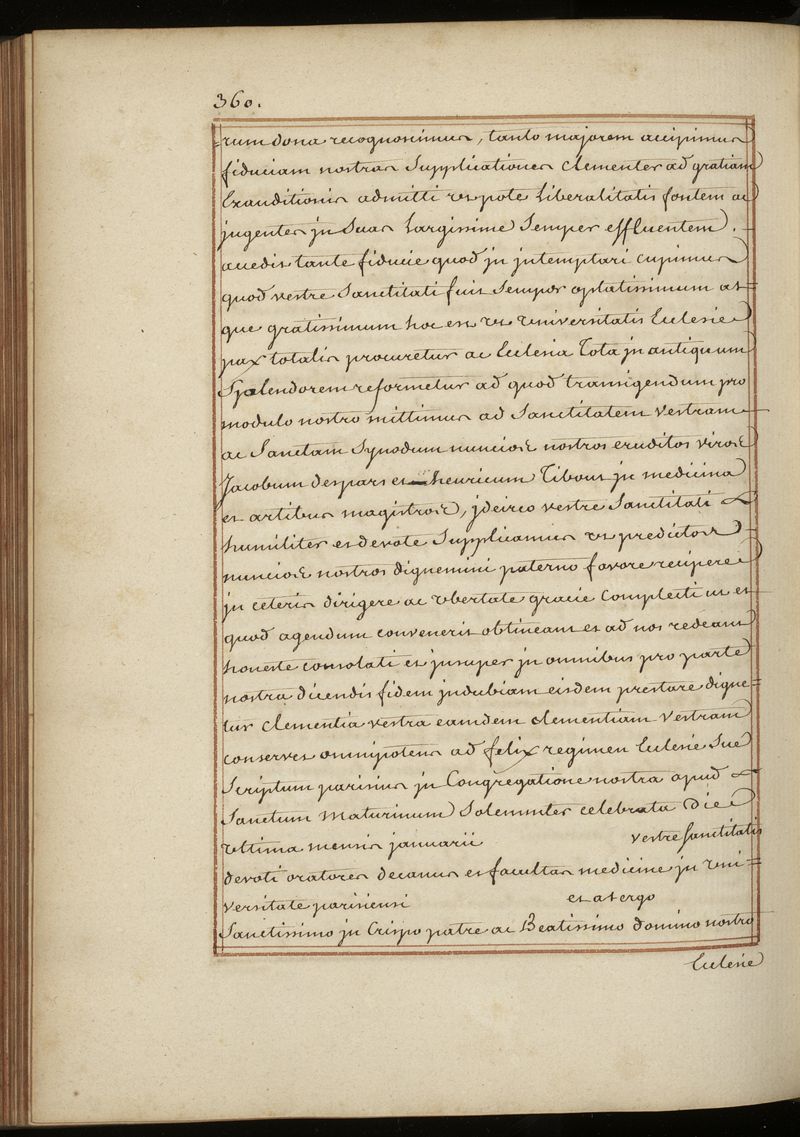 360.
=rum dona recognoscimus, tanto majorem accipimus
fiduciam nostras Supplicationes Clementer ad gratiam
Exauditionis admitti ut pote Liberalitatis fontem ac
jugenter in Suas Largissime Semper effluentem.
accedit tante fiducie quod in intemptari cupimus
quod vestre Sanctitati fuit Semper optatissimum at=
que gratissimum hoc est ut Universitatis Ecclesie
pax totalis procuretur ac Ecclesia Tota in antiquum
Splendorem reformetur ad quod transigendum pro
modulo nostro mittimus ad Sanctitatem Vestram
ac Sanctam Synodum nuncios nostros eruditos viros
Jacobum despars et henricum Tibout in medicina
et artibus magistros, jdcirco vestre Sanctitati
humiliter et devote Supplicamus ut predictos
nuncios nostros dignemini paterno favore recipere
in ceteris dirigere ac ubertate gracie complecti ut et
quod agendum convenerit obtineant et ad nos redeant
honeste consolati et insuper in omnibus pro parte
nostra dicendis fidem indubiam eisdem prestare digne=
tur Clementia vestra eamdem clementiam Vestram
conservet omnipotens ad felix regimen Ecclesie Sue
Scriptum parisius in Congregatione nostra apud
Sanctum Maturinum Solemniter celebrata Die
ultima mensis januarii vestre sanctitatis
devoti oratores decanus et facultas medicine in Uni=
versitate parisiensi et a tergo
Sanctissimo in Cristo patre ac Beatissimo domino nostro
Ecclesie